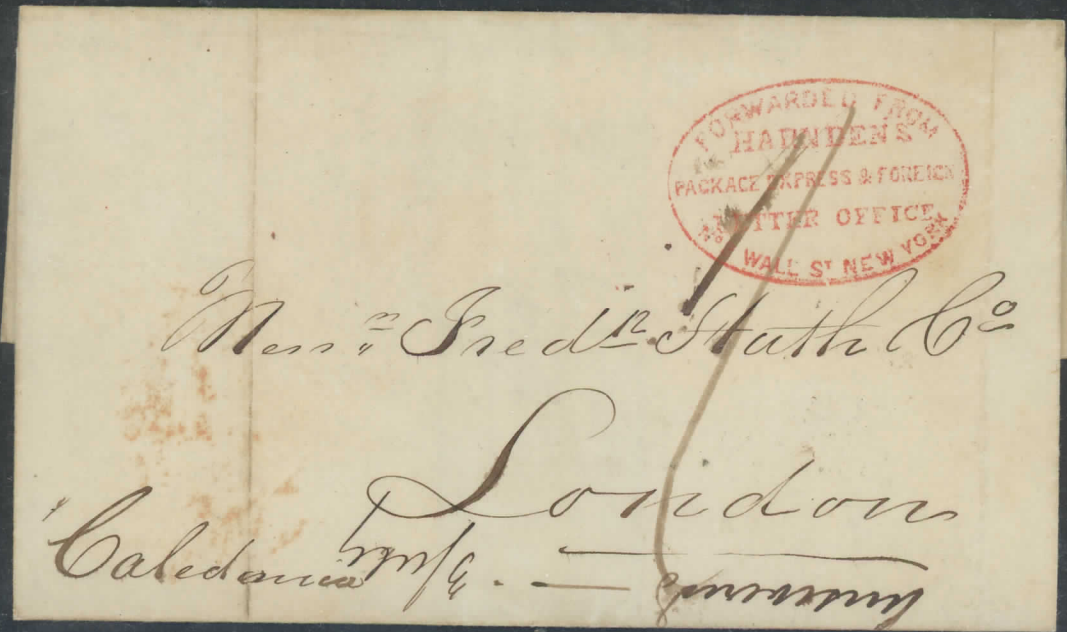 FORWARDED FROM
HARNDENS
PACKAGE EXPRESS & FOREIGN
LETTER OFFICE
No WALL ST. NEW YORK
Messrs Fredk Huth & Co
London
Caledonia